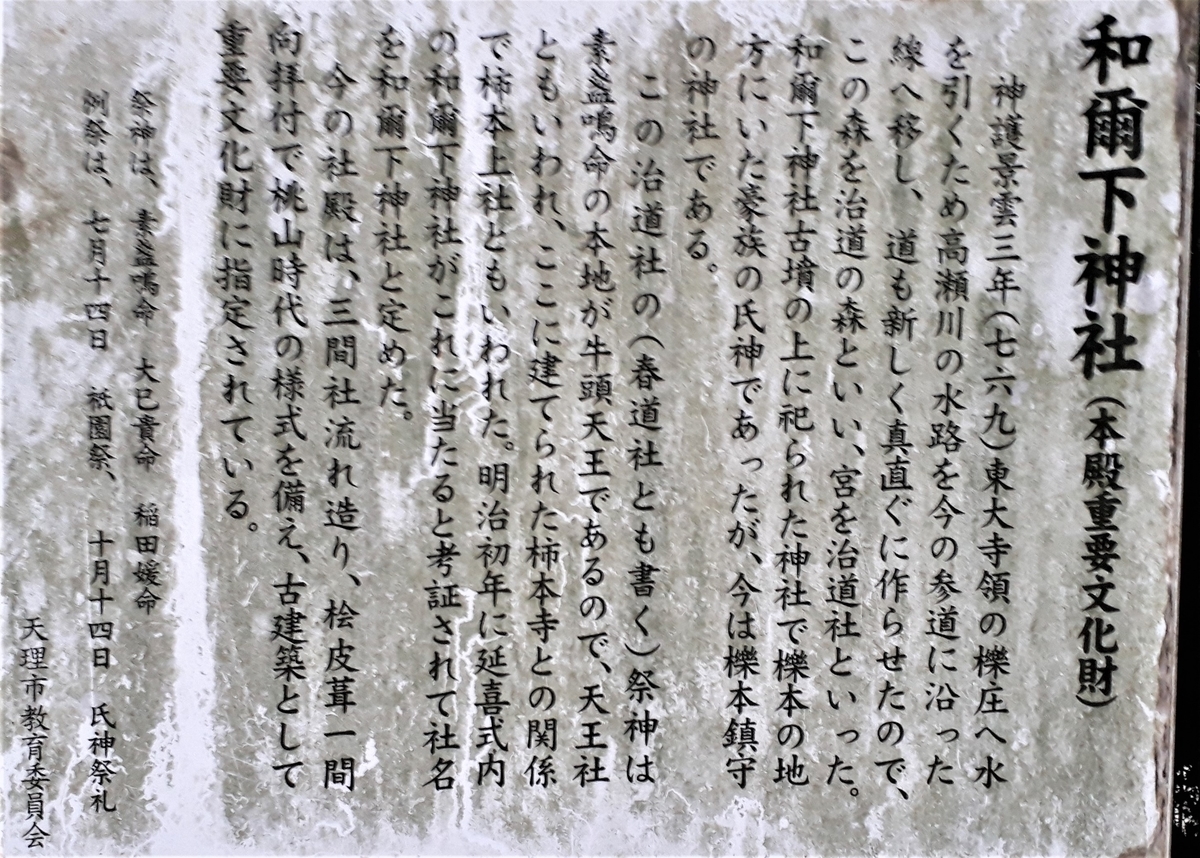 和爾下神社（本殿重要文化財）
神護景雲三年（七六九）東大寺領の櫟庄へ水
を引くため高瀬川の水路を今の参道に沿った
線へ移し、道も新しく真直ぐに作らせたので、
この森を治道の森といい、宮を治道社といった。
和爾下神社古墳の上に祀られた神社で櫟本の地
方にいた豪族の氏神であったが、今は櫟本鎮守
の神社である。
この治道社の（春道社とも書く）祭神は
素盞嗚命の本地が牛頭天王であるので、天王社
ともいわれ、ここに建てられた柿本寺との関係
で柿本上社ともいわれた。明治初年に延喜式内
の和爾下神社がこれに当たると考証されて社名
を和爾下神社と定めた。
今の社殿は、三間社流れ造り、桧皮葺一間
向拝付で桃山時代の様式を備え、古建築として
重要文化財に指定されている。
祭神は、素盞嗚命　大己貴命　稲田媛命
例祭は、七月十四日　祇園祭、　十月十四日　氏神祭礼
天理市教育委員会